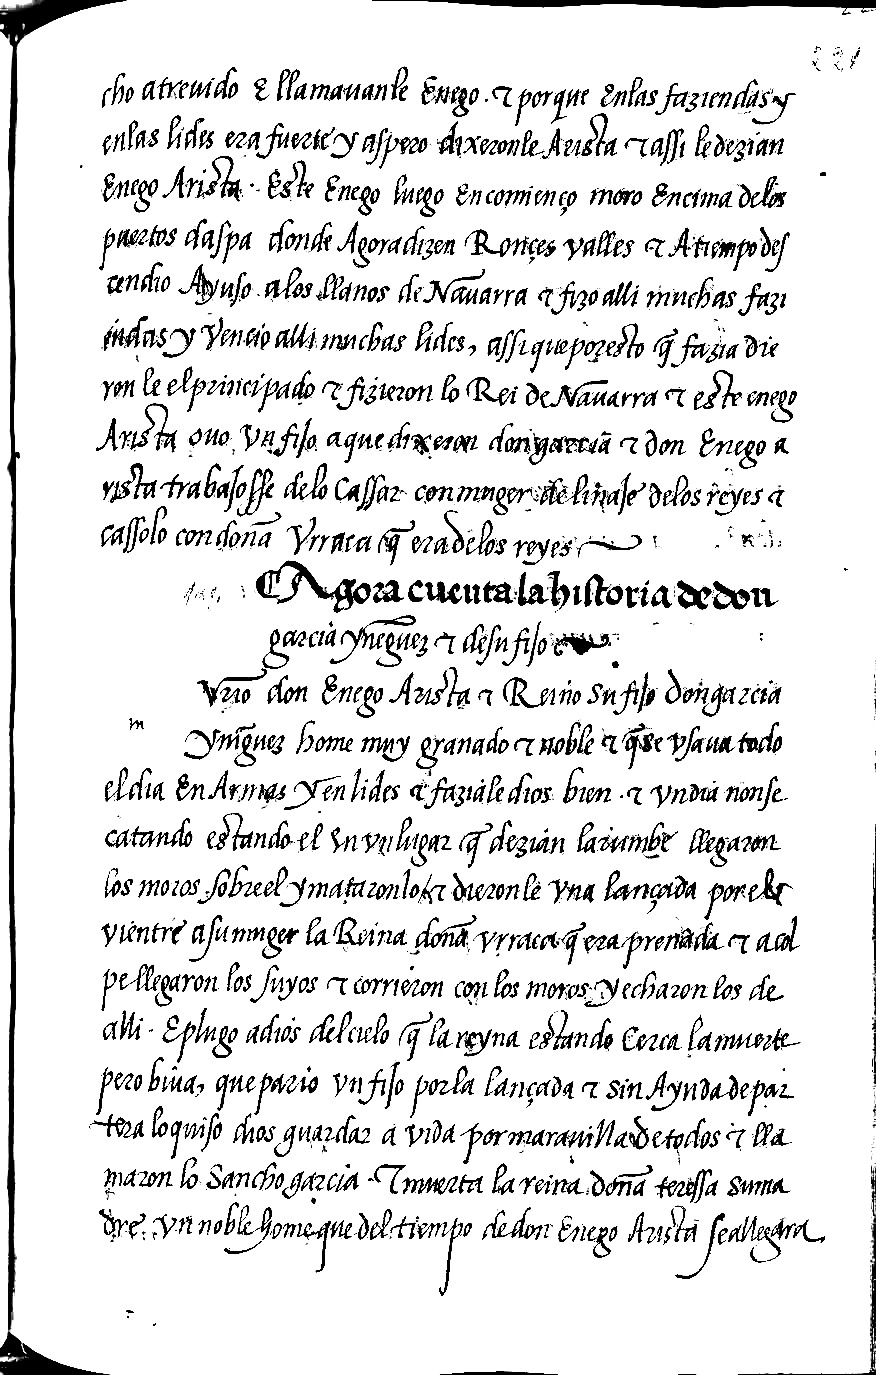 221
cho atreuido E llamauanle Enego . τ porque Enlas faziendas y
enlas lides era fuerte y aspero dixeronle Arista τ assi le dezian
Enego Arista . Este Enego luego en comienço moro Encima delos
puertos daspa donde Agora dizen Ronçes valles τ A tiempo des
cendio Ayuso alos llanos de Nauarra τ fizo alli muchas fazi
endas y Vencio alli muchas lides, assi que por esto q̃ fazia die
ron le el principado τ fizieron lo Rei de Nauarra τ este enego
Arista ouo vn fijo a que dixeron don garcia τ don Enego a
rista trabajosse delo Cassar con muger de linaje delos reyes τ
cassolo con doña Vrraca q̃ era delos reyes
Agora cuenta la historia de don
garcia yñeguez τ de su fijo
m
Vrio don Enego Arista τ Reino su fijo don garcia
Yniguez home muy granado τ noble τ q̃ se vsaua todo
el dia En Armas y en lides τ fazia le dios bien . τ vn dia non se
catando estando el En vn lugar q̃ dezian larumbe llegaron
los moros sobre el y mataron lo τ dieron le vna lançada por el
vientre a su muger la Reina doña vrraca q̃ era preñada τ a col
pe llegaron los suyos τ corrieron con los moros y echaron los de
alli . E plugo a dios del cielo q̃ la reyna estando Cerca la muerte
pero biua, que pario vn fijo por la lançada τ sin Ayuda de par
tera lo quiso dios guardar a vida por marauilla de todos τ lla
maron lo Sancho garcia . τ muerta la reina doña teressa su ma
dre vn noble home que del tiempo de don Enego Arista se allegara